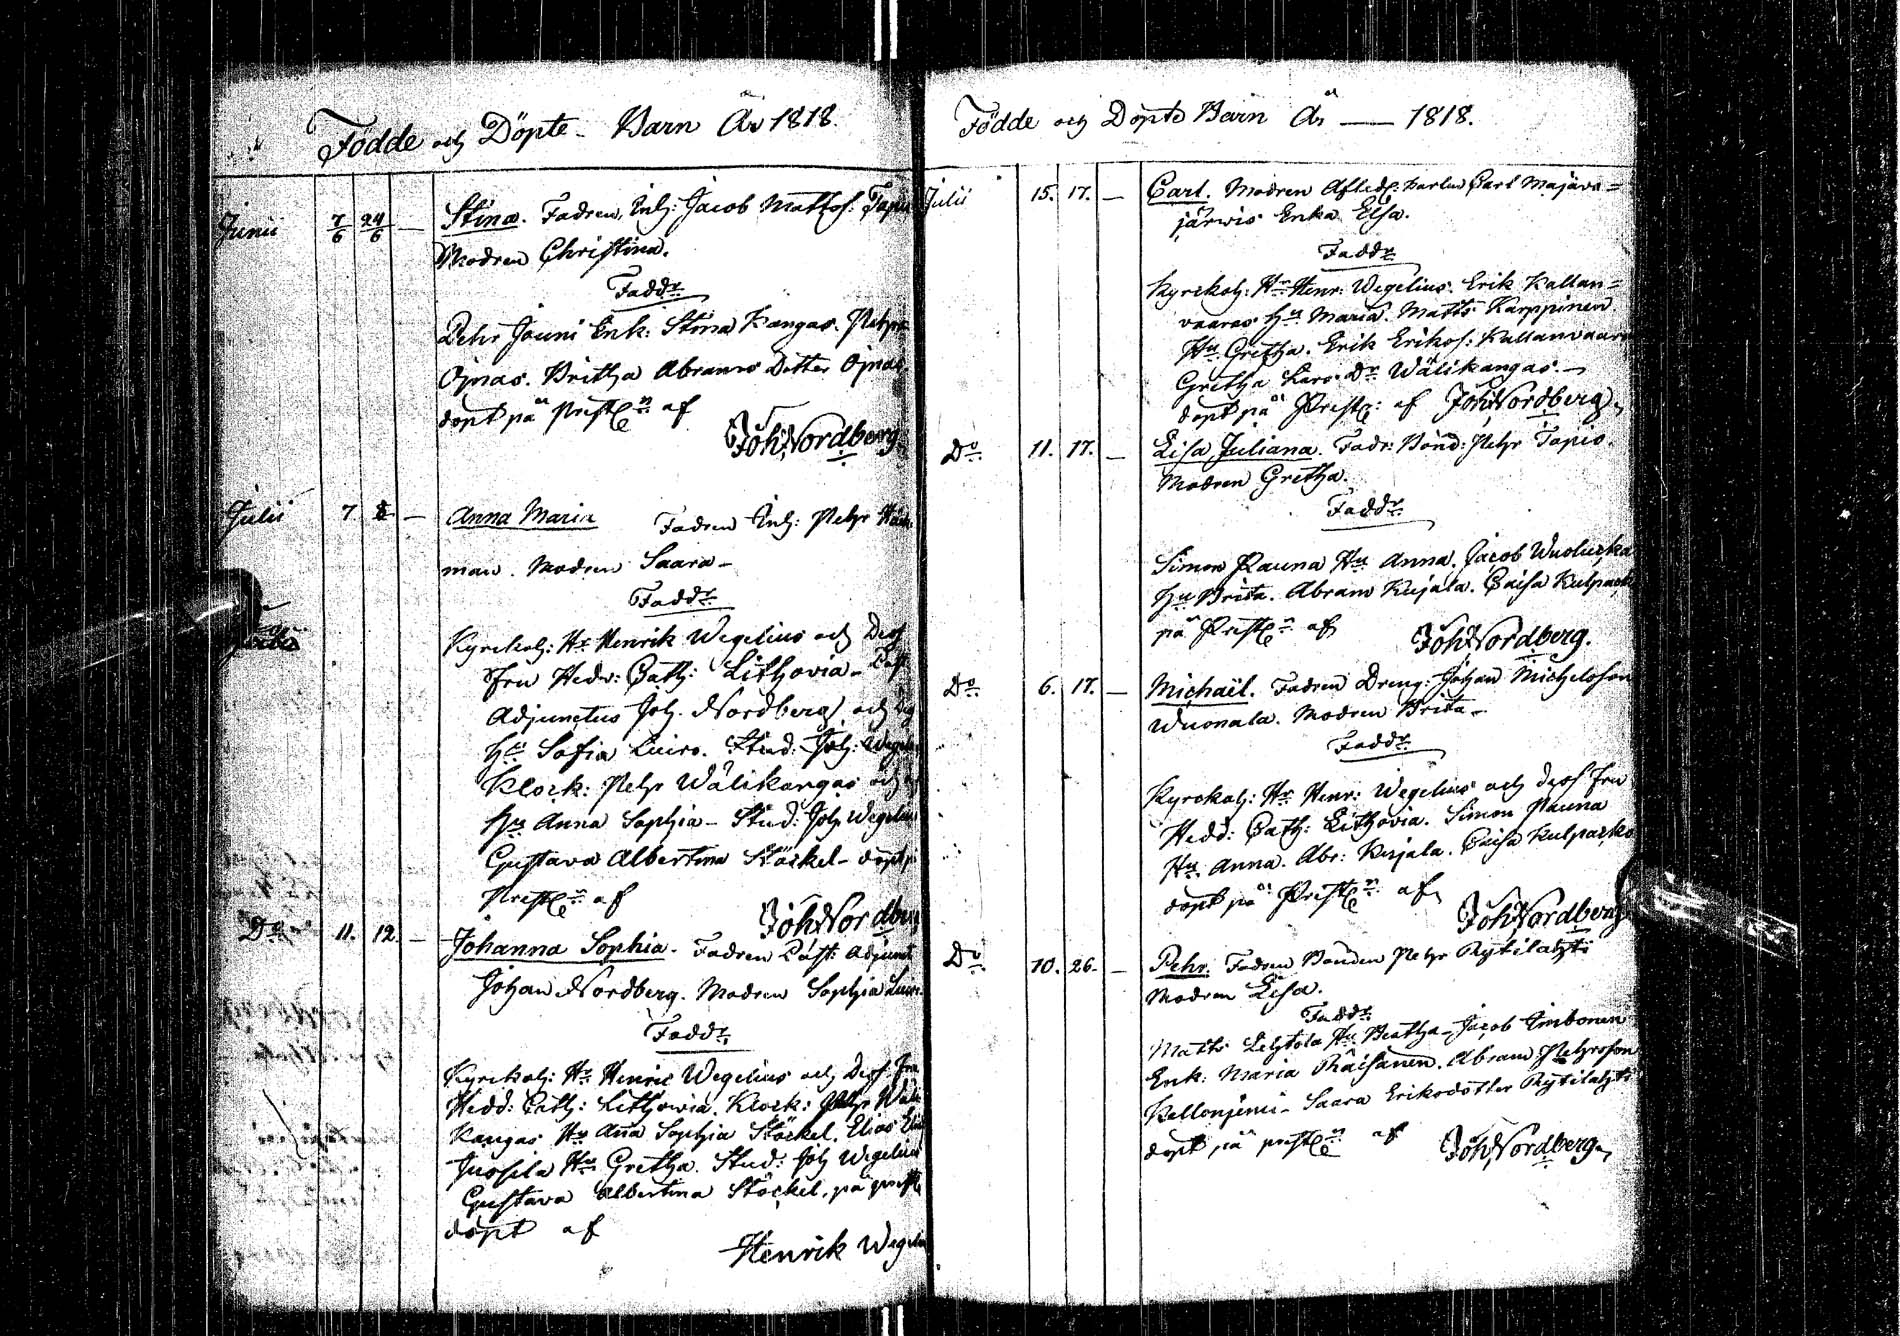 Födde och Döpte Barn År 1818.
Junii 7/6 24/6 — Stina. Fadren, Inh: Jacob Mattss: Tapio
Modren Christina.
Faddr:
Pehr Jouni Enk: Stina Kangas. Pehr
Ojnas. Britha Abrams Dotter Ojnas
döpt på Prestg:n af
Joh: Nordberg
Julii 7 8 — Anna Maria Fadren Inh: Pehr
man. Modren Saara —
Faddr:
Kyrkoh: Hr Henrik Wegelius och Dess
Fru Hedv: Cath: Lithovia — Past:
Adjunctus Joh. Nordberg och Dess
Hu Sofia Luiro. Stud: Joh: Wegelius
Klock: Pehr Wälikangas och
Hu Anna Sophia — Stud: Joh Wegelius
Gustava Albertina Stöckel — döpt på
Prestg:n af
Joh: Nordberg
Do 11. 12. — Johanna Sophia. Fadren Past: Adjunct
Johan Nordberg. Modren Sophia Luiro
Faddr:
Kyrkoh: Hr Henric Wegelius och Dess Fru
Hedd: Cath: Lithowia. Klock: Pehr Wäli
kangas Hu Anna Sophia Stöckel. Elias
Hu Gretha. Stud: Joh Wegelius
Gustava Albertina Stöckel, på prestg
döpt af
Henrik Wegelius
Födde och Döpte Barn År — 1818.
Julii 15. 17. — Carl. Modren Afled: Karlen Carl Majava=
järwis Enka Elsa.
Faddr:
Kyrkoh: Hr Henr: Wegelius. Erik Kallan=
vaaras Hu Maria. Matts Karppinen
Hu Gretha. Erik Erikss: Kallanvaara
Gretha Lars Dr Wälikangas. —
döpt på Prestg: af Joh: Nordberg
Do 11. 17. — Lisa Juliana. Fadr: Bond: Pehr Tapio.
Modren Gretha.
Faddr:
Simon Pauna Hu Anna. Jacob
Hu Brita. Abram Kujala. Caisa Kulpakko
på Prestg:n af Joh: Nordberg.
Do 6. 17. — Michaël. Fadren Dreng: Johan Michelsson
Wuonala. Modren Brita —
Faddr:
Kyrkoh: Hr Henr: Wegelius och dess Fru
Hedd: Cath: Lithovia. Simon Pauna
Hu Anna. Abr: Kujala. Caisa Kulpakko
döpt på Prestg:n af
Joh: Nordberg
Do 10. 26. — Pehr. Fadren Bonden Pehr Rytilahti
Modren Lisa.
Faddr:
Matts Lehtola Hu Beatha — Jacob Imbonen
Enk: Maria Räisänen. Abram Pehrsson
Kellonjemi — Saara Eriksdotter Rytilahti
döpt på prestg:n af Joh: Nordberg